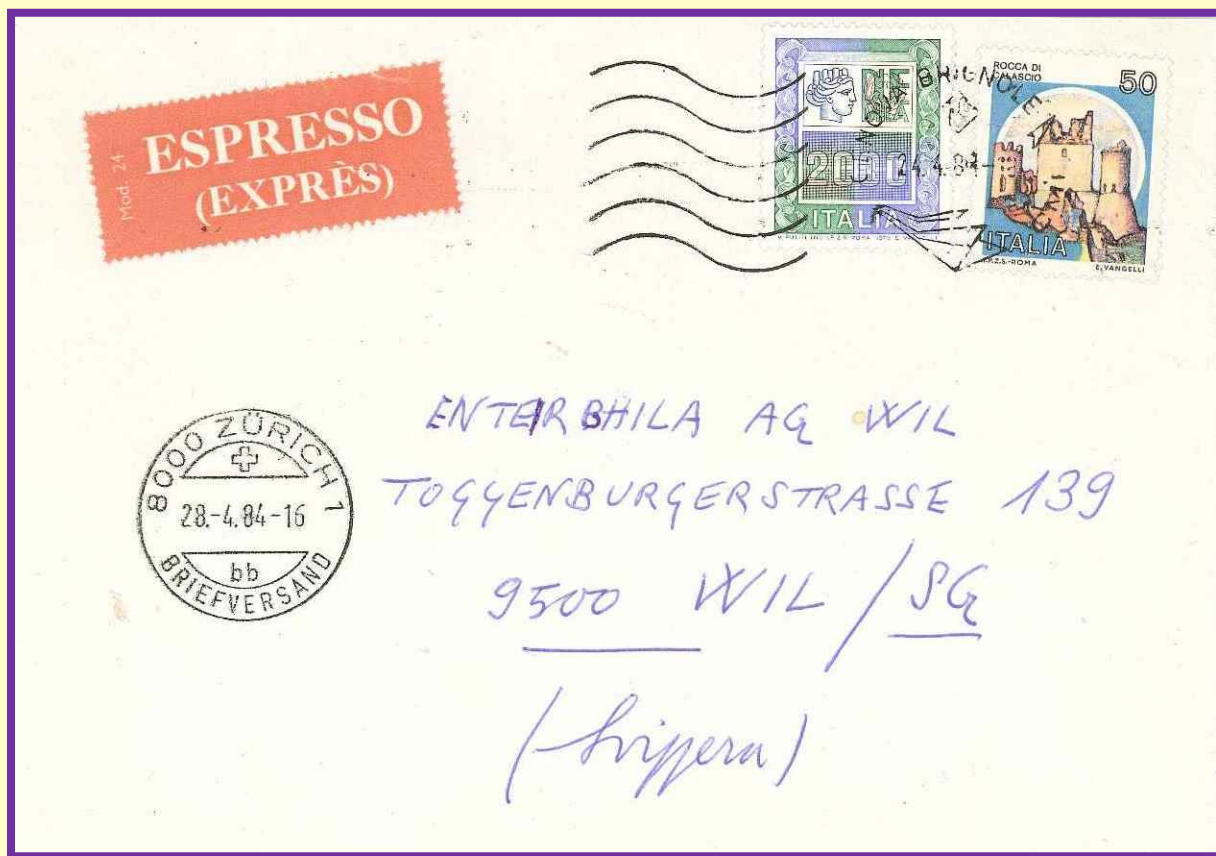 Mod. 24
ESPRESSO
(EXPRÈS)
2000
ITALIA
BRIGNOLE
24.4.84
ROCCA DI
CALASCIO
50
ITALIA
I.P.Z.S.-ROMA
E. VANGELLI
8000 ZÜRICH 1
28.-4.84-16
bb
BRIEFVERSAND
ENTERPHILA AG WIL
TOGGENBURGERSTRASSE 139
9500 WIL / SG
(Svizzera)